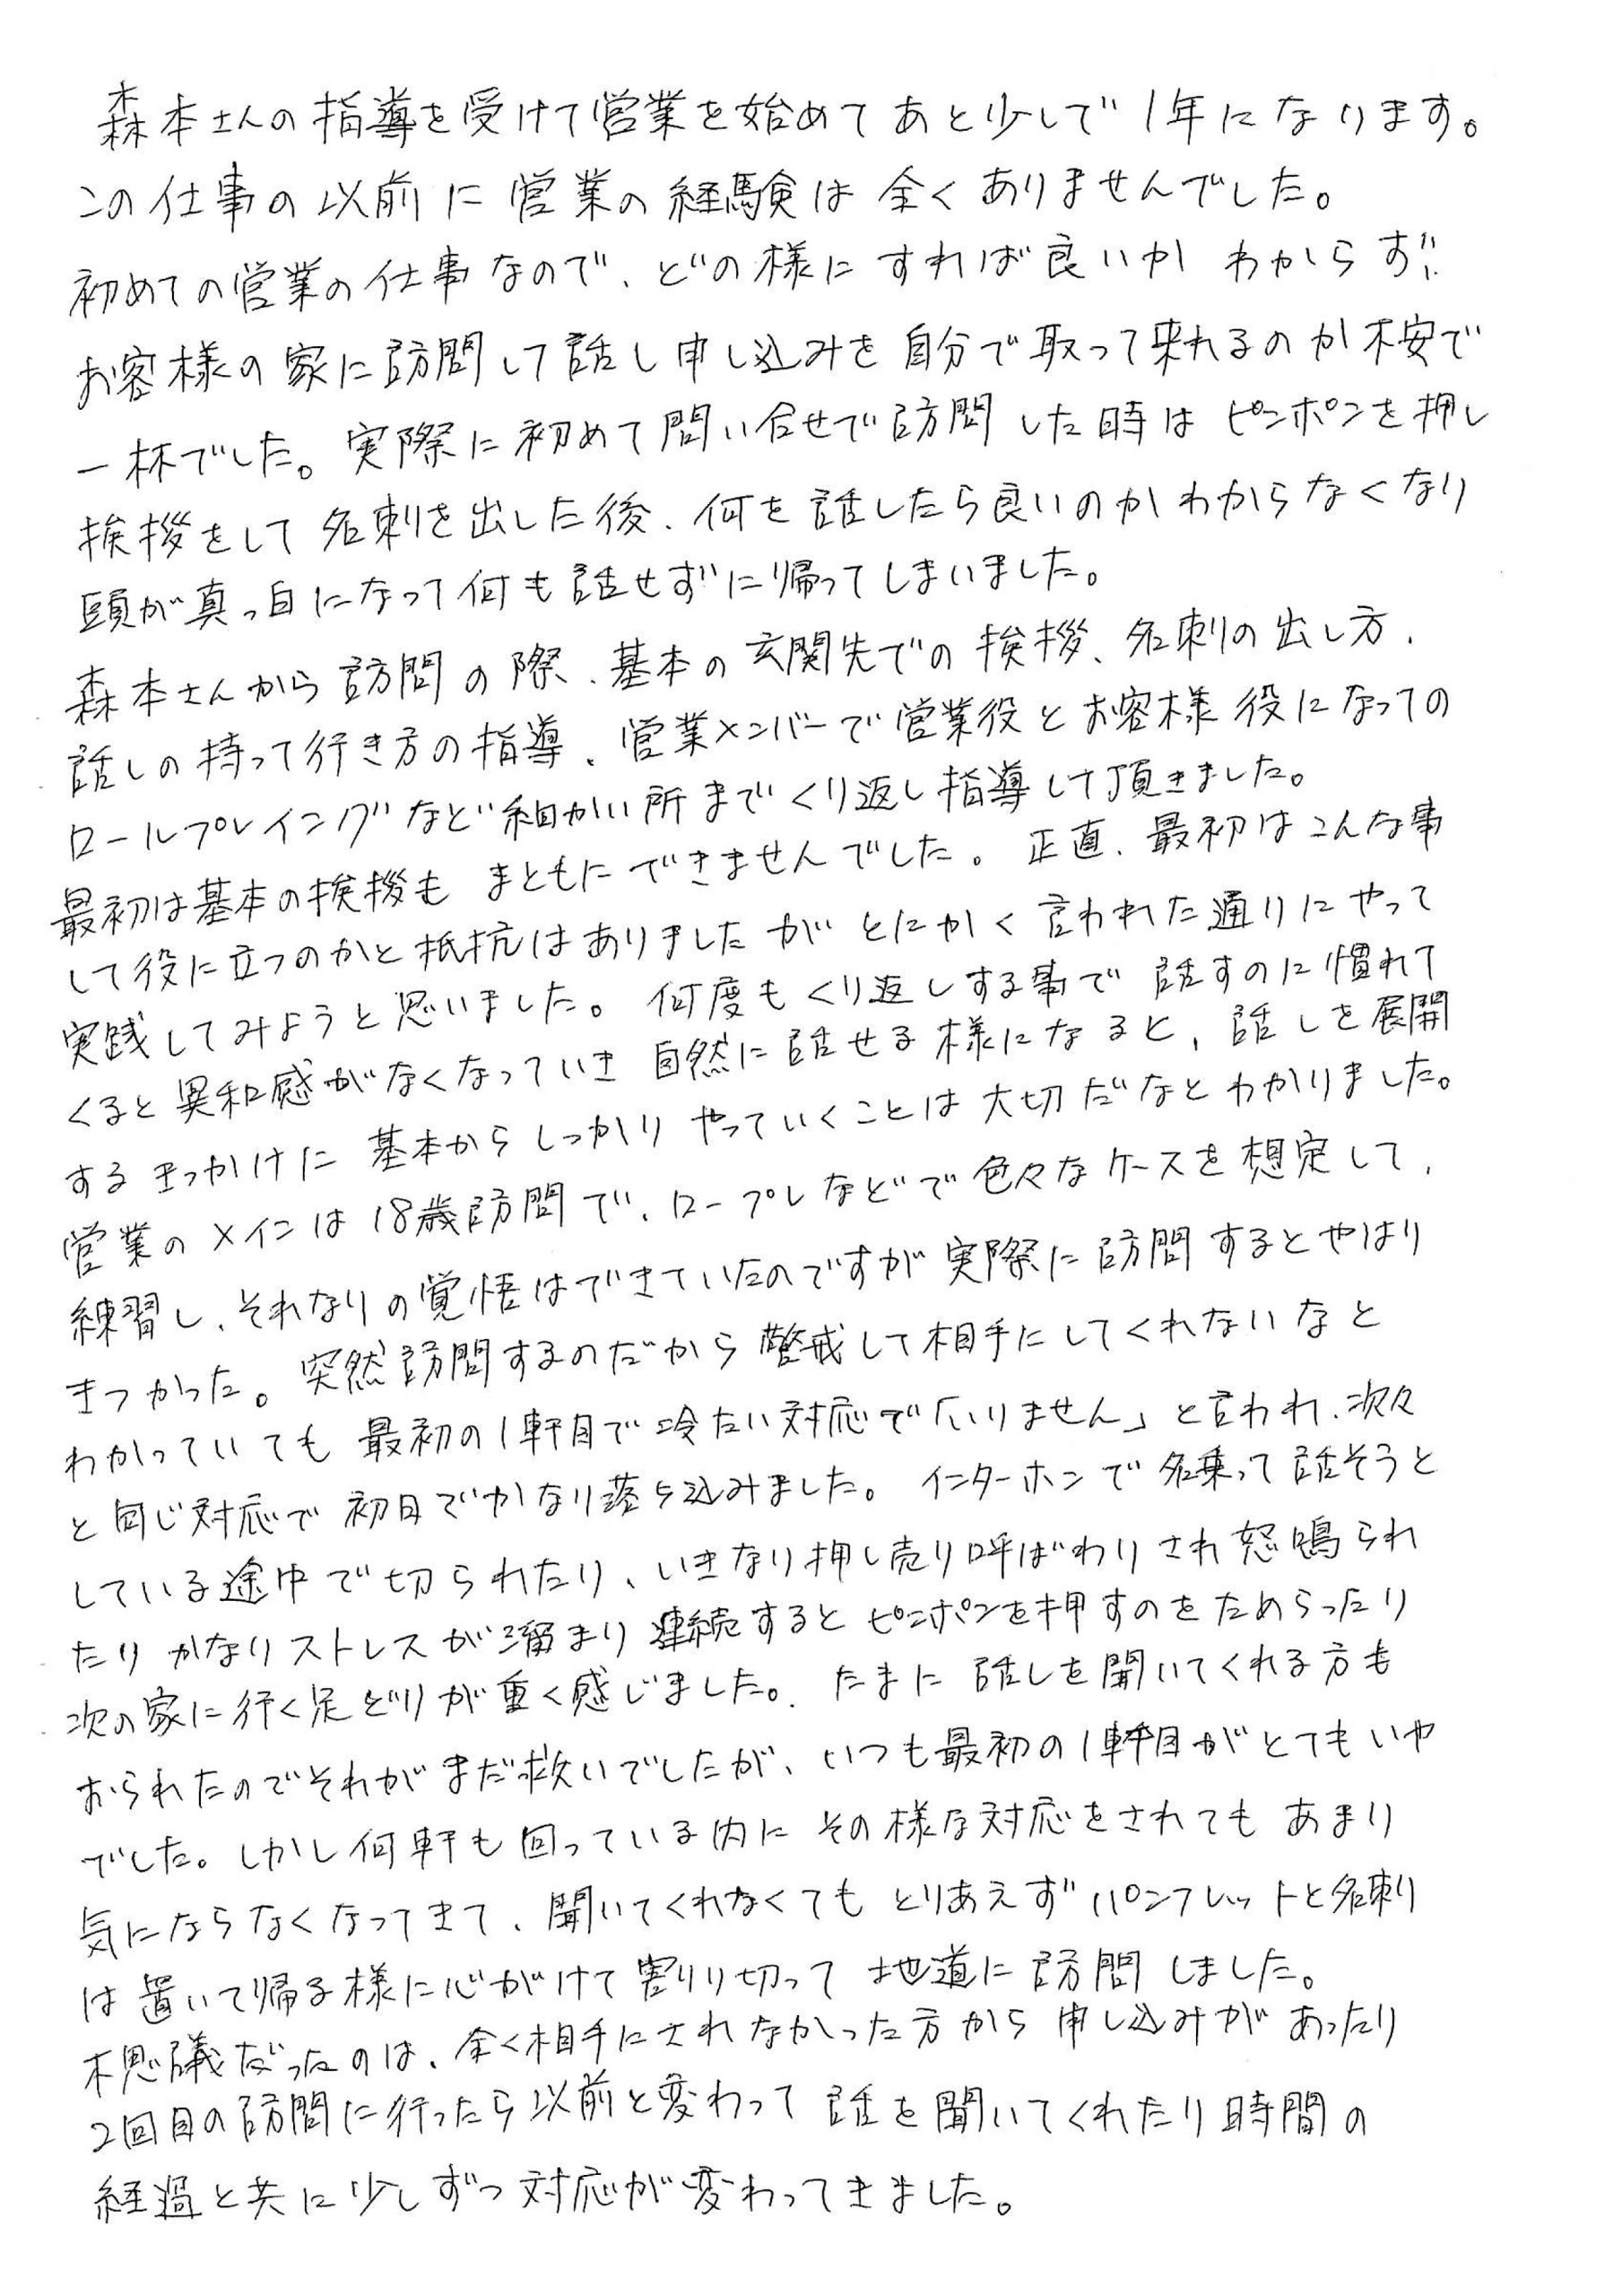 森本さんの指導を受けて営業を始めてあと少しで1年になります。
この仕事の以前に営業の経験は全くありませんでした。
初めての営業の仕事なので、どの様にすれば良いかわからず
お客様の家に訪問して話し申し込みを自分で取って来れるのか不安で
一杯でした。実際に初めて問い合せで訪問した時はピンポンを押し
挨拶をして名刺を出した後、何を話したら良いのかわからなくなり
頭が真っ白になって何も話せずに帰ってしまいました。
森本さんから訪問の際、基本の玄関先での挨拶、名刺の出し方、
話しの持って行き方の指導、営業メンバーで営業役とお客様役になっての
ロールプレイングなど細かい所までくり返し指導して頂きました。
最初は基本の挨拶もまともにできませんでした。正直、最初はこんな事
して役に立つのかと抵抗はありましたがとにかく言われた通りにやって
実践してみようと思いました。何度もくり返しする事で話すのに慣れて
くると異和感がなくなっていき自然に話せる様になると、話しを展開
するきっかけに基本からしっかりやっていくことは大切だなとわかりました。
営業のメインは18歳訪問で、ロープレなどで色々なケースを想定して、
練習し、それなりの覚悟はできていたのですが実際に訪問するとやはり
きつかった。突然訪問するのだから警戒して相手にしてくれないなと
わかっていても最初の1軒目で冷たい対応で「いりません」と言われ、次々
と同じ対応で初日でかなり落ち込みました。インターホンで名乗って話そうと
している途中で切られたり、いきなり押し売り呼ばわりされ怒鳴られ
たりかなりストレスが溜まり連続するとピンポンを押すのをためらったり
次の家に行く足どりが重く感じました。たまに話しを聞いてくれる方も
おられたのでそれがまだ救いでしたが、いつも最初の1軒目がとてもいや
でした。しかし何軒も回っている内にその様な対応をされてもあまり
気にならなくなってきて、聞いてくれなくてもとりあえずパンフレットと名刺
は置いて帰る様に心がけて割り切って地道に訪問しました。
不思議だったのは、全く相手にされなかった方から申し込みがあったり
2回目の訪問に行ったら以前と変わって話を聞いてくれたり時間の
経過と共に少しずつ対応が変わってきました。